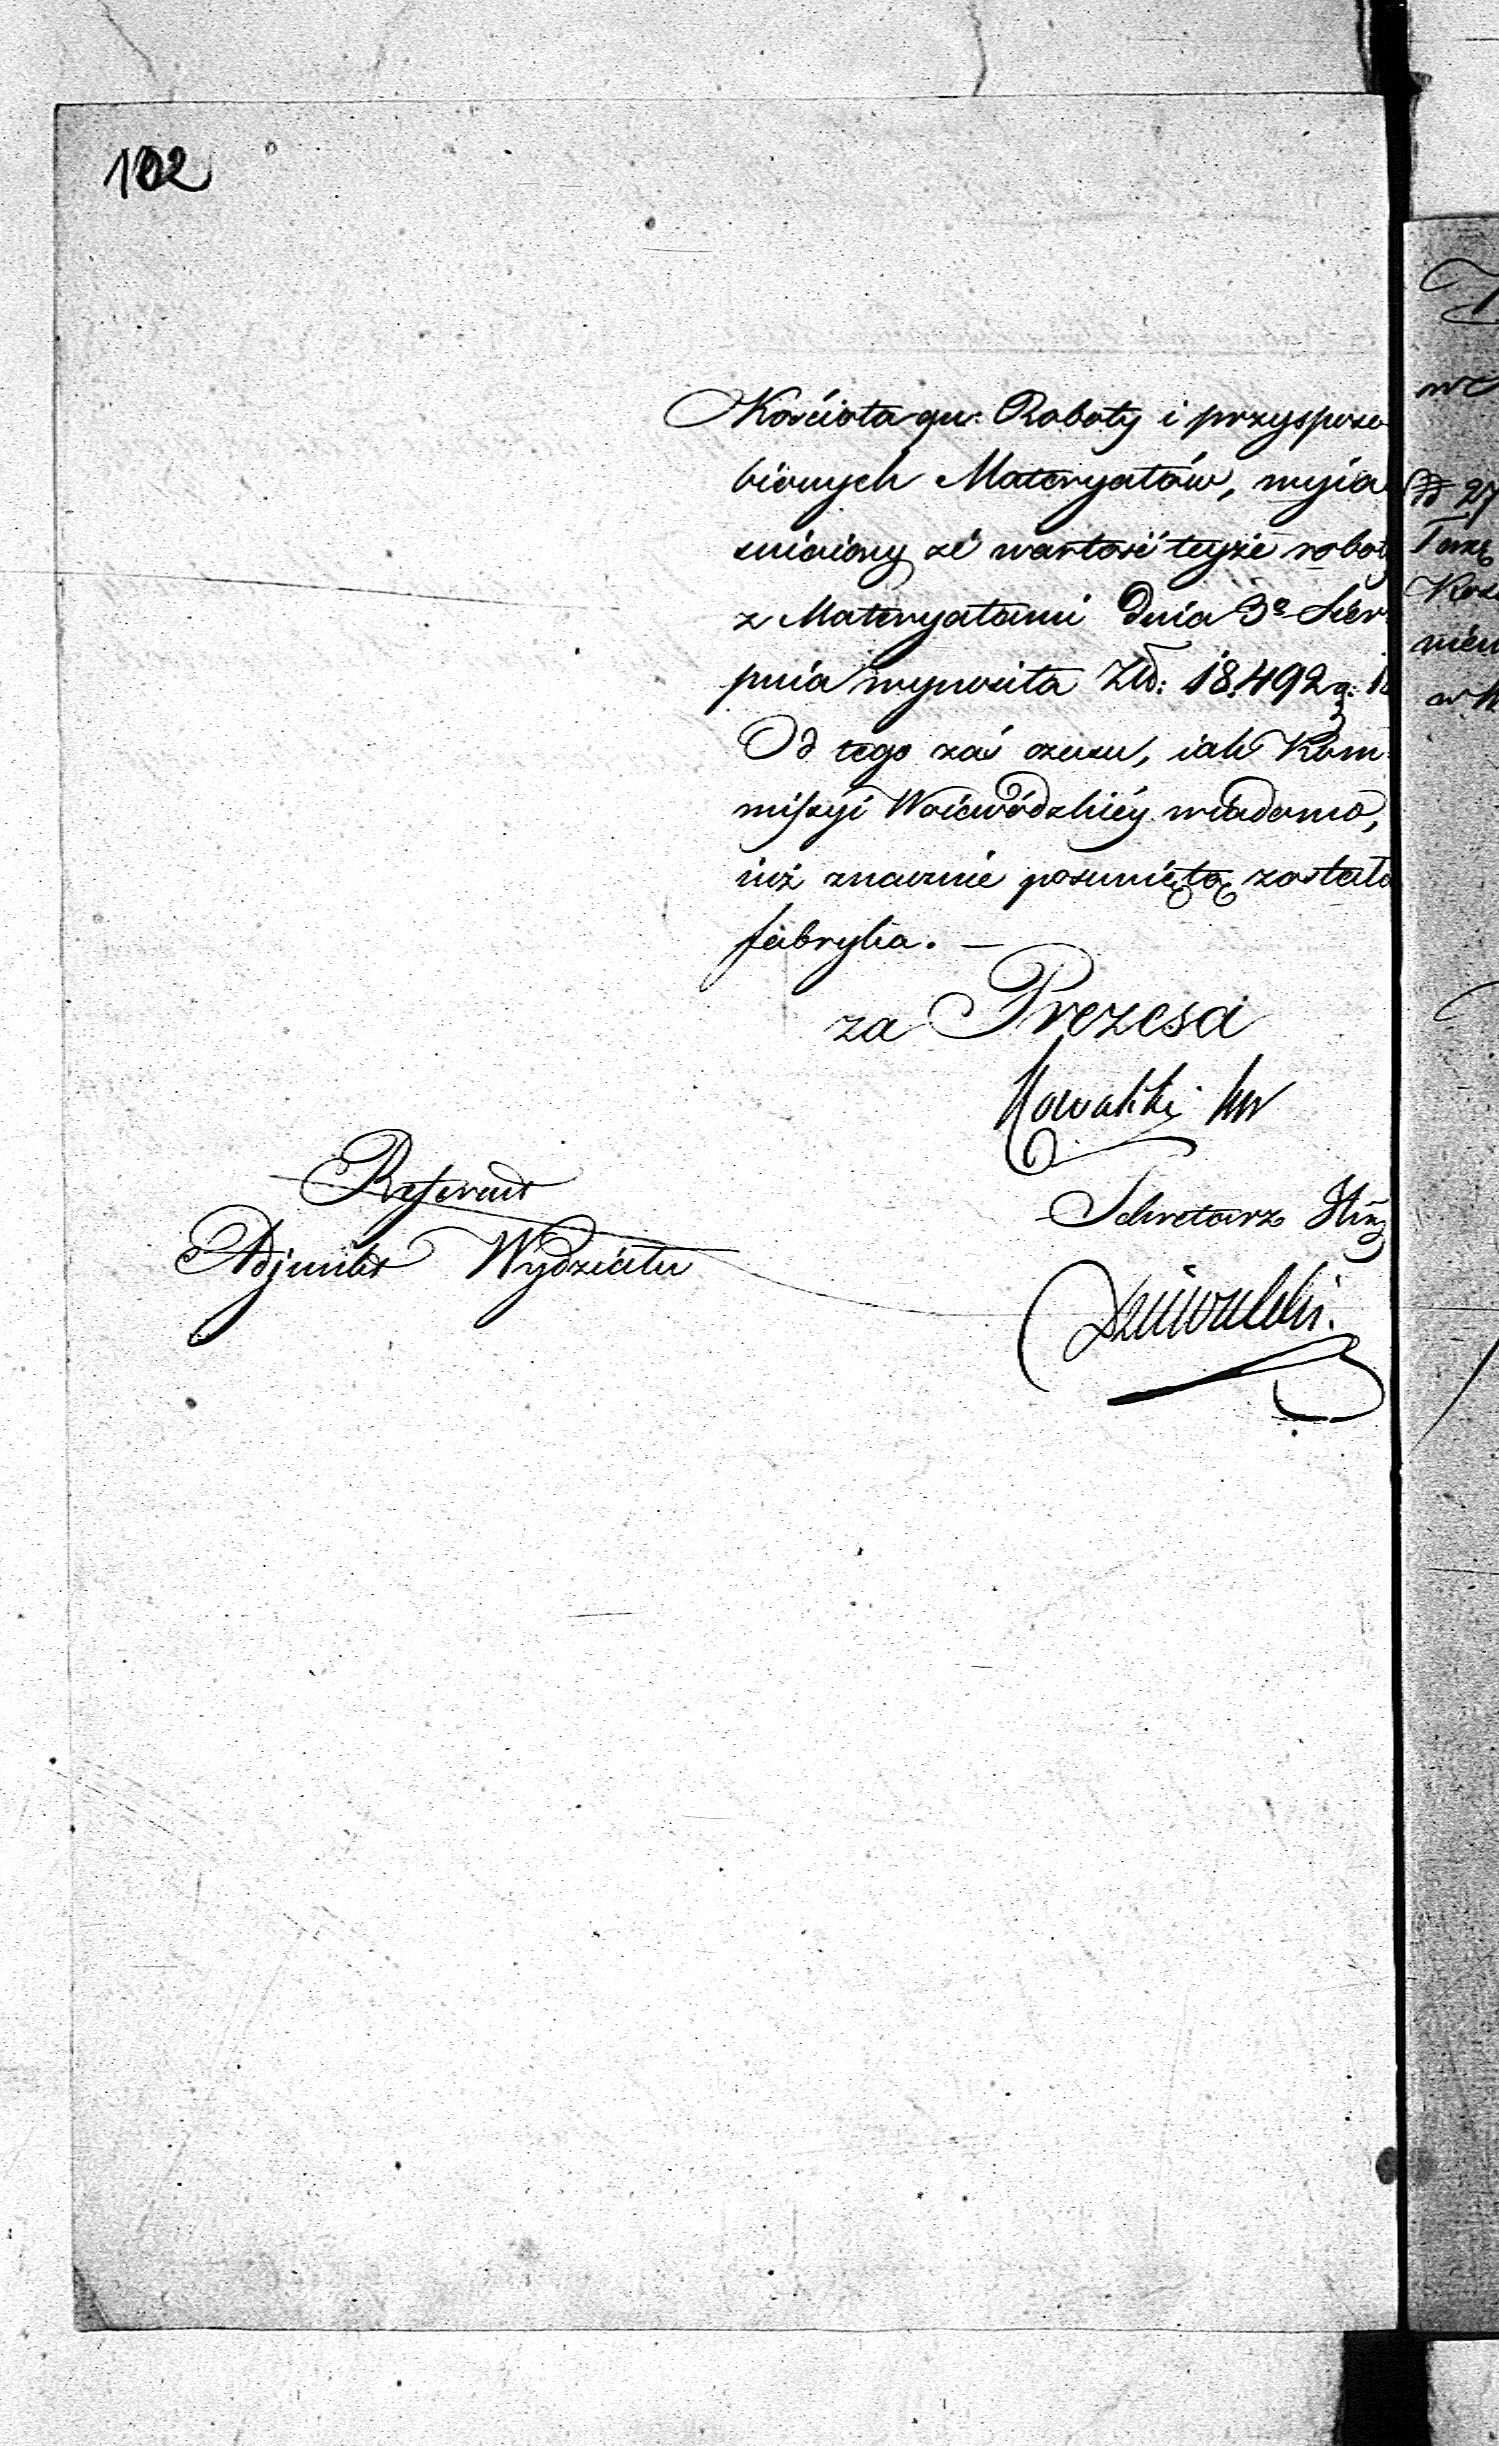 102
Kościoła qu: Roboty i przysposo
bionych Materyałów, wyia
śniaiący że wartość teyże robot
z Materyałami dnia 3º Sier
pnia wynosiła Złł: 18,492 g: 1
Od tego zaś czasu, iak Kom
missyi Woiewódzkiéy wiadomo,
iuż znacznie posuniętą została
fabryka. —
za Prezesa
Kowalski
Sekretarz
Referent
Adjunkt Wydziału